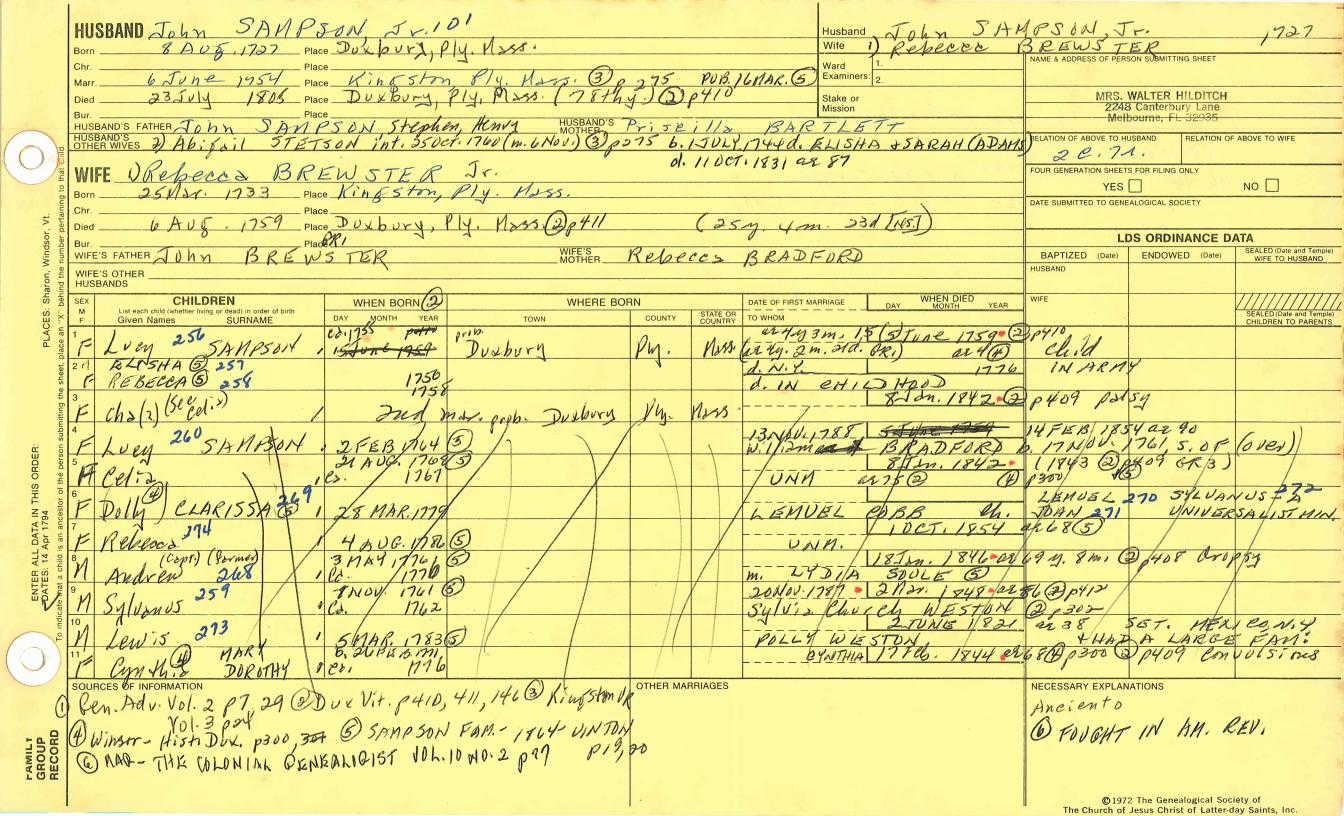 HUSBAND John SAMPSON, Jr. 101
Born 8 Aug. 1727 Place Duxbury, Ply. Mass.
Chr. Place
Marr. 6 June 1754 Place Kingston, Ply. Mass. ③ p275 PUB. 16 MAR. ⑤
Died 23 July Place Duxbury, Ply. Mass. (78thy) ② p410
Bur. Place
HUSBAND'S FATHER John SAMPSON, Stephen, Henry HUSBAND'S MOTHER Priscilla BARTLETT
HUSBAND'S OTHER WIVES 2) Abigail STETSON int. 25 Oct. 1760 (m. 6 Nov.) ③ p275 b. 1 JULY, 1744 d. ELISHA & SARAH (ADAMS)
d. 11 OCT. 1831 ae 87
WIFE 1) Rebecca BREWSTER Jr.
Born 25 Mar. 1733 Place Kingston, Ply. Mass.
Chr. Place
Died 6 Aug. 1759 Place Duxbury, Ply. Mass. ② p411 (25y. 4m. 23d [NS.])
Bur. Place GR1
WIFE'S FATHER John BREWSTER WIFE'S MOTHER Rebecca BRADFORD
WIFE'S OTHER HUSBANDS
Husband John SAMPSON, Jr. 1727
Wife 1) Rebecca BREWSTER
Ward Examiners: 1.
2.
Stake or Mission
NAME & ADDRESS OF PERSON SUBMITTING SHEET
MRS. WALTER HILDITCH
2248 Canterbury Lane
Melbourne, FL 32935
RELATION OF ABOVE TO HUSBAND RELATION OF ABOVE TO WIFE
2 C. 7 r.
FOUR GENERATION SHEETS FOR FILING ONLY
YES NO
DATE SUBMITTED TO GENEALOGICAL SOCIETY
LDS ORDINANCE DATA
BAPTIZED (Date) ENDOWED (Date) SEALED (Date and Temple) WIFE TO HUSBAND
HUSBAND
WIFE
SEALED (Date and Temple) CHILDREN TO PARENTS
SEX M F CHILDREN WHEN BORN ② WHERE BORN DATE OF FIRST MARRIAGE WHEN DIED
List each child (whether living or dead) in order of birth
Given Names SURNAME DAY MONTH YEAR TOWN COUNTY STATE OR COUNTRY TO WHOM DAY MONTH YEAR
1 F Lucy 256 SAMPSON ca. 1755 prob. Duxbury Ply. Mass ae 4y 3m. 15 (5 June 1759 ② p410
GR1) ae 4 ④ child
2 ELISHA ⑤ 257 1756 d. N.Y. 1776 IN ARMY
F REBECCA ⑤ 258 1758 d. IN CHILDHOOD
3 F Cha(2) (See Celia) 2nd mar. prob. Duxbury Ply. Mass 8 Jan. 1842 ② p409 palsy
4 F Lucy 260 SAMPSON 2 FEB 1764 ⑤ 13 NOV. 1788 14 FEB 1854 ae 90
William BRADFORD b. 17 NOV. 1761, S. OF (over)
5 F Celia 21 AUG. 1768 ⑤ ca. 1767 UNM 8 Jan. 1842 (1843 ② p409 GR3)
ae 75 ② ④ p300 ⑤
6 F Dolly ④ CLARISSA 269 ⑤ 28 MAR. 1779 LEMUEL COBB ch. LEMUEL 270 SYLVANUS 272
JOAN 271 UNIVERSALIST MIN.
7 F Rebecca 274 4 AUG. 1786 ⑤ UNM. 1 OCT. 1854 ae 68 ⑤
8 M Andrew (Capt.) (Farmer) 268 3 MAY 1776 ⑤ ca. 1776 m. LYDIA SOULE ⑤ 18 Jan. 1846 ae 69 y. 8m. ② p408 Dropsy
9 M Sylvanus 259 7 NOV. 1761 ⑤ ca. 1762 20 Nov. 1787 2 Mar. 1848 ae 86 ② p412
Sylvia Church WESTON ② p302
10 M Lewis 273 5 MAR. 1783 ⑤ POLLY WESTON 2 JUNE 1821 ae 38 SET. MEXICO N.Y.
& HAD A LARGE FAM.
11 F Cynthia ④ MARY DOROTHY ca. 1776 CYNTHIA 17 Feb. 1844 ae 68 ④ p300 ② p409 Convulsions
SOURCES OF INFORMATION
① Gen. Adv. Vol. 2 p7, 29 ② Dux Vit. p410, 411, 146 ③ Kingston VR
Vol. 3 p24
④ Winsor - Hist. Dux. p300, 301 ⑤ SAMPSON FAM. - 1864 - VINTON p19, 20
⑥ - THE COLONIAL GENEALOGIST VOL. 10 NO. 2 p97
OTHER MARRIAGES
NECESSARY EXPLANATIONS
Anciento
⑥ FOUGHT IN AM. REV.
©1972 The Genealogical Society of
The Church of Jesus Christ of Latter-day Saints, Inc.
PLACES: Sharon, Windsor, Vt.
ENTER ALL DATA IN THIS ORDER:
DATES: 14 Apr 1794
To indicate that a child is an ancestor of the person submitting the sheet, place an "X" behind the number pertaining to that child.
FAMILY GROUP RECORD